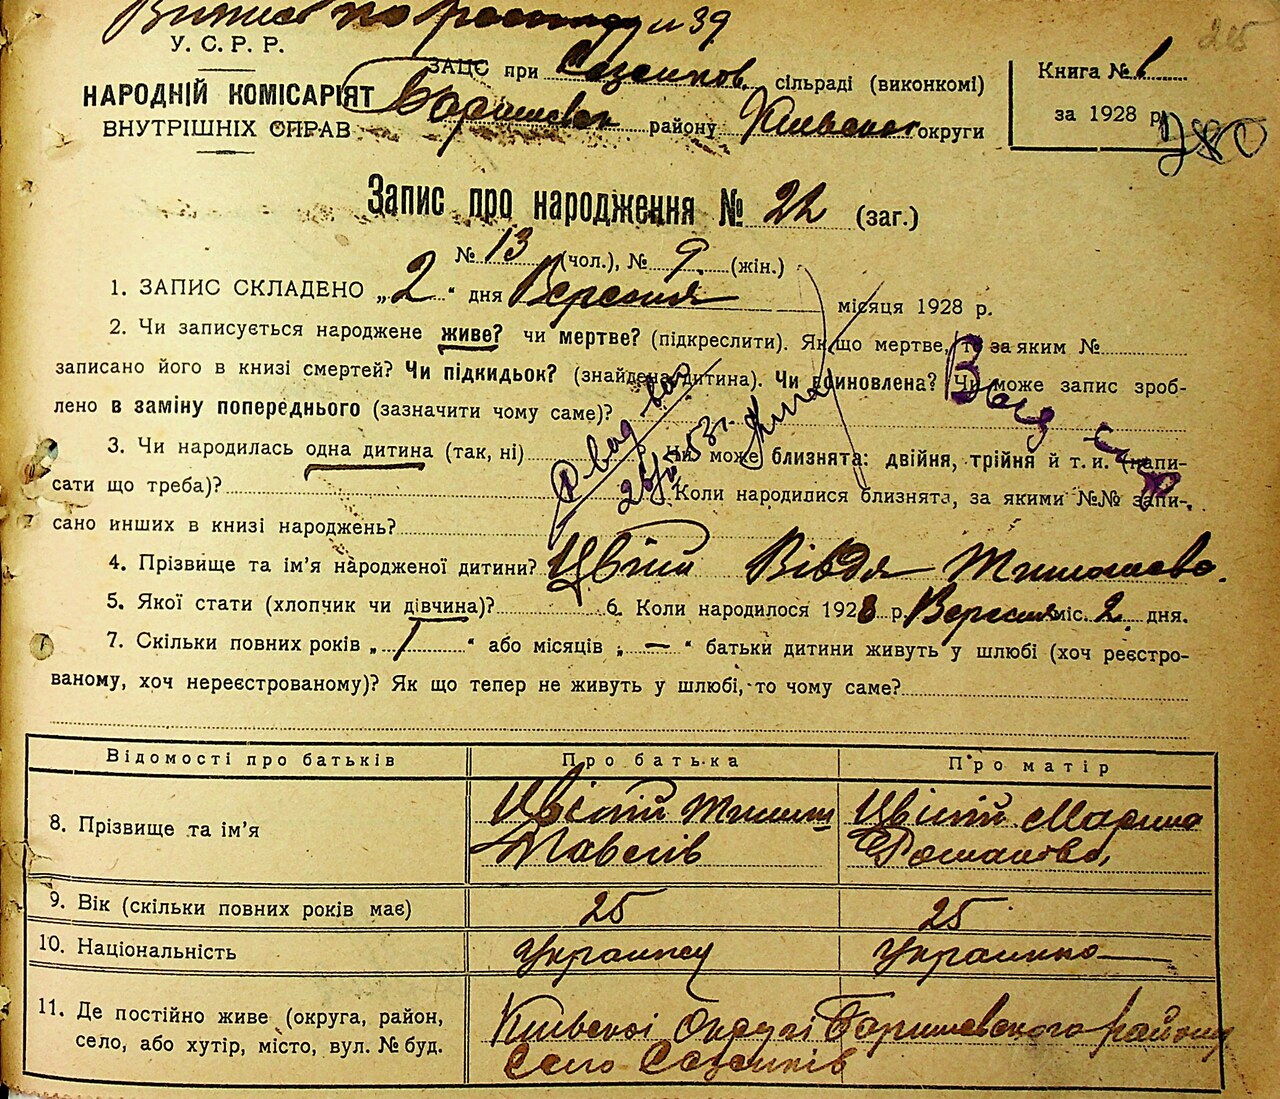 Випис по розшуку н 39
215
У. С. Р. Р.
НАРОДНІЙ КОМІСАРІЯТ
ВНУТРІШНІХ СПРАВ
ЗАЦС при Сезенков. сільраді (виконкомі)
Баришевск району Київської округи
Книга № 1
за 1928 р.
280
Запис про народження № 22 (заг.)
№ 13 (чол.), № 9 (жін.)
1. ЗАПИС СКЛАДЕНО „2“ дня Вересня місяця 1928 р.
2. Чи записується народжене живе? чи мертве? (підкреслити). Як що мертве, то за яким №
записано його в книзі смертей? Чи підкидьок? (знайдена дитина). Чи вдиновлена? Чи може запис зроб-
лено в заміну попереднього (зазначити чому саме)?
3. Чи народилась одна дитина (так, ні) Чи може близнята: двійня, трійня й т. и. (напи-
сати що треба)? Коли народилися близнята, за якими №№ запи-
сано инших в книзі народжень?
4. Прізвище та ім'я народженої дитини? Цвітий Вівдя Тимошева.
5. Якої стати (хлопчик чи дівчина)? 6. Коли народилося 1928 р. Вересня міс. 2 дня.
7. Скільки повних років „1“ або місяців „—“ батьки дитини живуть у шлюбі (хоч реєстро-
ваному, хоч нереєстрованому)? Як що тепер не живуть у шлюбі, то чому саме?
Відомості про батьків Про батька Про матір
8. Прізвище та ім'я Цвітий Тимиш Павлів Цвітий Марина Романова,
9. Вік (скільки повних років має) 25 25
10. Національність Украинец Украинка
11. Де постійно живе (округа, район, Київскоі Округі Баришевського району
село, або хутір, місто, вул. № буд. Село Сезенків